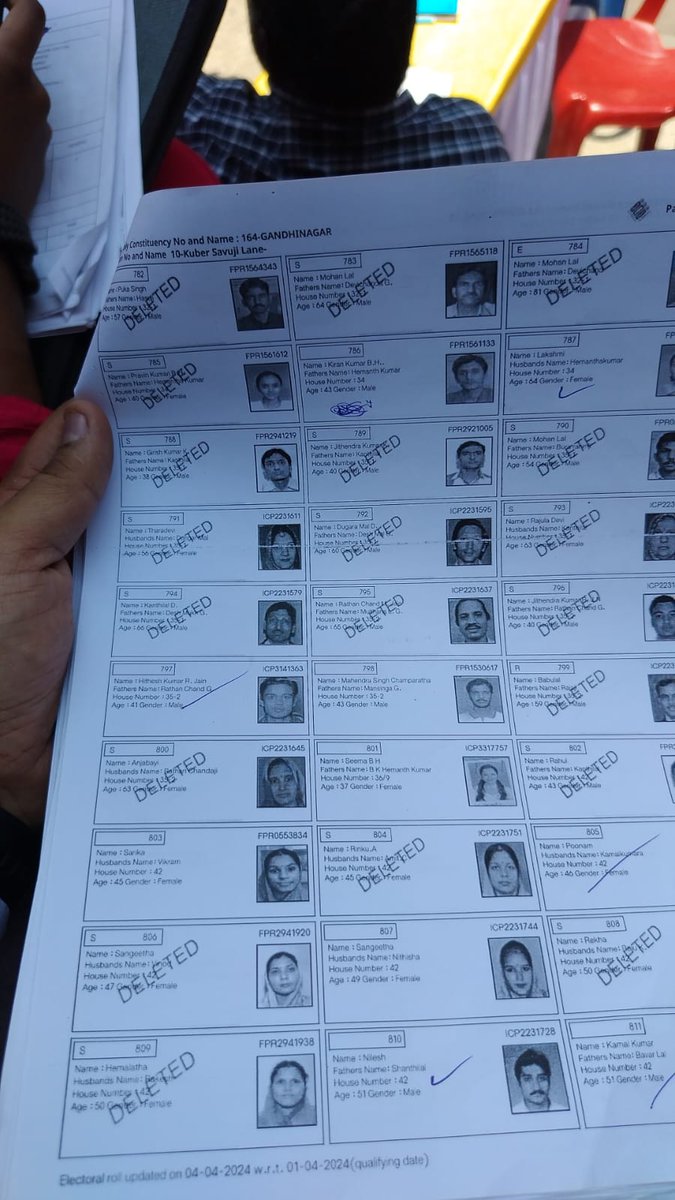 Constituency No and Name : 164-GANDHINAGAR
No and Name 10-Kuber Savuji Lane-
782
FPR1564343
Puka Singh
Age : 57 Gender : Male
DELETED
S 783
FPR1565118
Name : Mohan Lal
Fathers Name :
House Number :
Age : 64 Gender : Male
DELETED
E 784
Name : Mohan Lal
Fathers Name :
House Number :
Age : 81 Gender : Male
DELETED
S 785
FPR1561612
Name : Pravin Kumar
Fathers Name :
House Number :
Age : 40
DELETED
786
FPR1561133
Name : Kiran Kumar B.H..
Fathers Name : Hemanth Kumar
House Number : 34
Age : 43 Gender : Male
787
Name : Lakshmi
Husbands Name : Hemanthakumar
House Number : 34
Age : 64 Gender : Female
S 788
FPR2941219
Name : Girish Kumar
Fathers Name :
House Number :
Age : 38 Gender : Male
DELETED
S 789
FPR2921005
Name : Jithendra Kumar
Fathers Name :
House Number :
Age : 40 Gender : Male
DELETED
S 790
Name : Mohan Lal
Fathers Name :
House Number :
Age : 54 Gender : Male
DELETED
S 791
ICP2231611
Name : Tharadevi
Husbands Name :
House Number :
Age : 56 Gender : Female
DELETED
S 792
ICP2231595
Name : Dugara Mal D.
Fathers Name :
House Number :
Age : 60 Gender : Male
DELETED
S 793
Name : Rajula Devi
Husbands Name :
House Number :
Age : 63 Gender : Female
DELETED
S 794
ICP2231579
Name : Kanthilal D.
Fathers Name :
House Number :
Age : 66 Gender : Male
DELETED
S 795
ICP2231637
Name : Rathan Chand
Fathers Name :
House Number :
Age : 65 Gender : Male
DELETED
S 796
Name : Jithendra Kumar
Fathers Name : Rathan Chand G.
House Number :
Age : 40 Gender : Male
DELETED
797
ICP3141363
Name : Hithesh Kumar R. Jain
Fathers Name : Rathan Chand G
House Number : 35-2
Age : 41 Gender : Male
798
FPR1530617
Name : Mahendru Singh Champaratha
Fathers Name : Mansinga G.
House Number : 35-2
Age : 43 Gender : Male
R 799
Name : Babulal
Fathers Name :
House Number :
Age : 59 Gender : Male
DELETED
S 800
ICP2231645
Name : Anjabayi
Husbands Name : Rathan Chandaji
House Number : 35-2
Age : 63 Gender : Female
DELETED
801
ICP3317757
Name : Seema B H
Fathers Name : B K Hemanth Kumar
House Number : 36/9
Age : 37 Gender : Female
S 802
Name : Rahul
Fathers Name :
House Number : 42
Age : 43 Gender : Male
DELETED
803
FPR0553834
Name : Sarika
Husbands Name : Vikram
House Number : 42
Age : 45 Gender : Female
S 804
ICP2231751
Name : Rinku.A
Husbands Name :
House Number : 42
Age : 45 Gender : Female
DELETED
805
Name : Poonam
Husbands Name : Kamalkumara
House Number : 42
Age : 46 Gender : Female
S 806
FPR2941920
Name : Sangeetha
Husbands Name :
House Number : 42
Age : 47 Gender : Female
DELETED
807
ICP2231744
Name : Sangeetha
Husbands Name : Nithisha
House Number : 42
Age : 49 Gender : Female
S 808
Name : Rekha
Husbands Name :
House Number : 42
Age : 50 Gender : Female
DELETED
S 809
FPR2941938
Name : Hemalatha
Husbands Name :
House Number : 42
Age : 50 Gender : Female
DELETED
810
ICP2231728
Name : Nilesh
Fathers Name : Shanthilal
House Number : 42
Age : 51 Gender : Male
811
Name : Kamal Kumar
Fathers Name : Bavar Lal
House Number : 42
Age : 51 Gender : Male
Electoral roll updated on 04-04-2024 w.r.t. 01-04-2024(qualifying date)